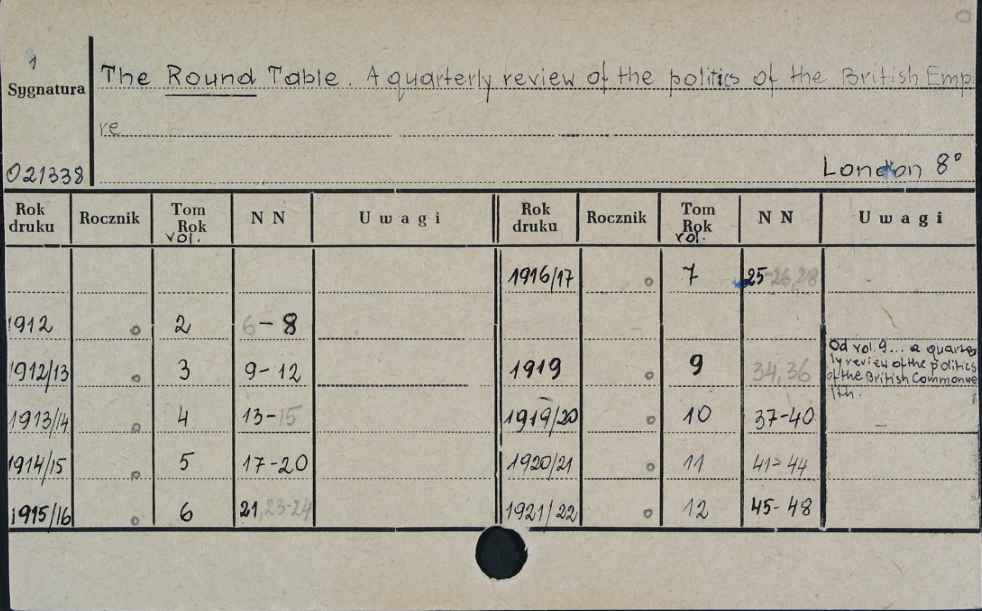 1
Sygnatura
The Round Table. A quarterly review of the politics of the British Emp
re
021338
London 8°
Rok druku Rocznik Tom Rok vol. N N Uwagi Rok druku Rocznik Tom Rok vol. N N Uwagi
1916/17 o 7 25-26,28 -
1912 o 2 6-8
1912/13 o 3 9-12 1919 o 9 34,36 Od vol. 9... a quarte
ly review of the politics
of the British Commonwe
lth.
1913/14 o 4 13-15 1919/20 o 10 37-40 -
1914/15 o 5 17-20 1920/21 o 11 41-44
1915/16 o 6 21,23-24 1921/22 o 12 45-48